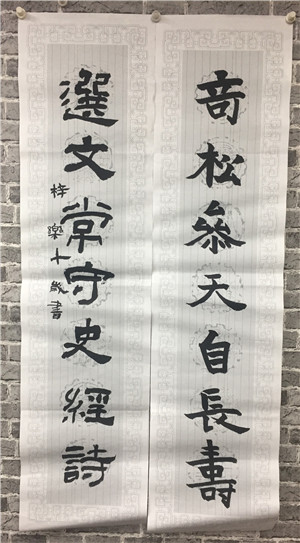 奇松參天自長壽
選文常守史經詩
梓樂十歲書